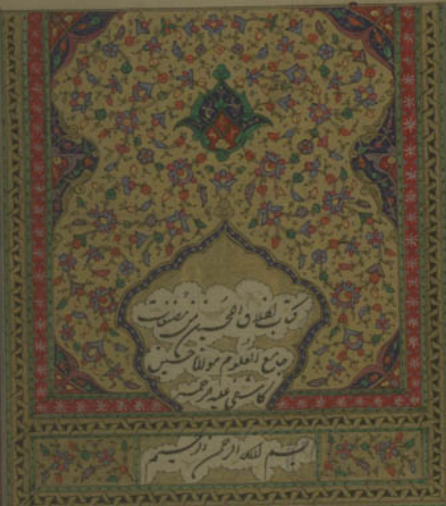 کتاب اخلاق المحسنین من مصنفات
جامع العلوم مولانا حسین
کاشفی علیه الرحمه
بسم الله الرحمن الرحیم